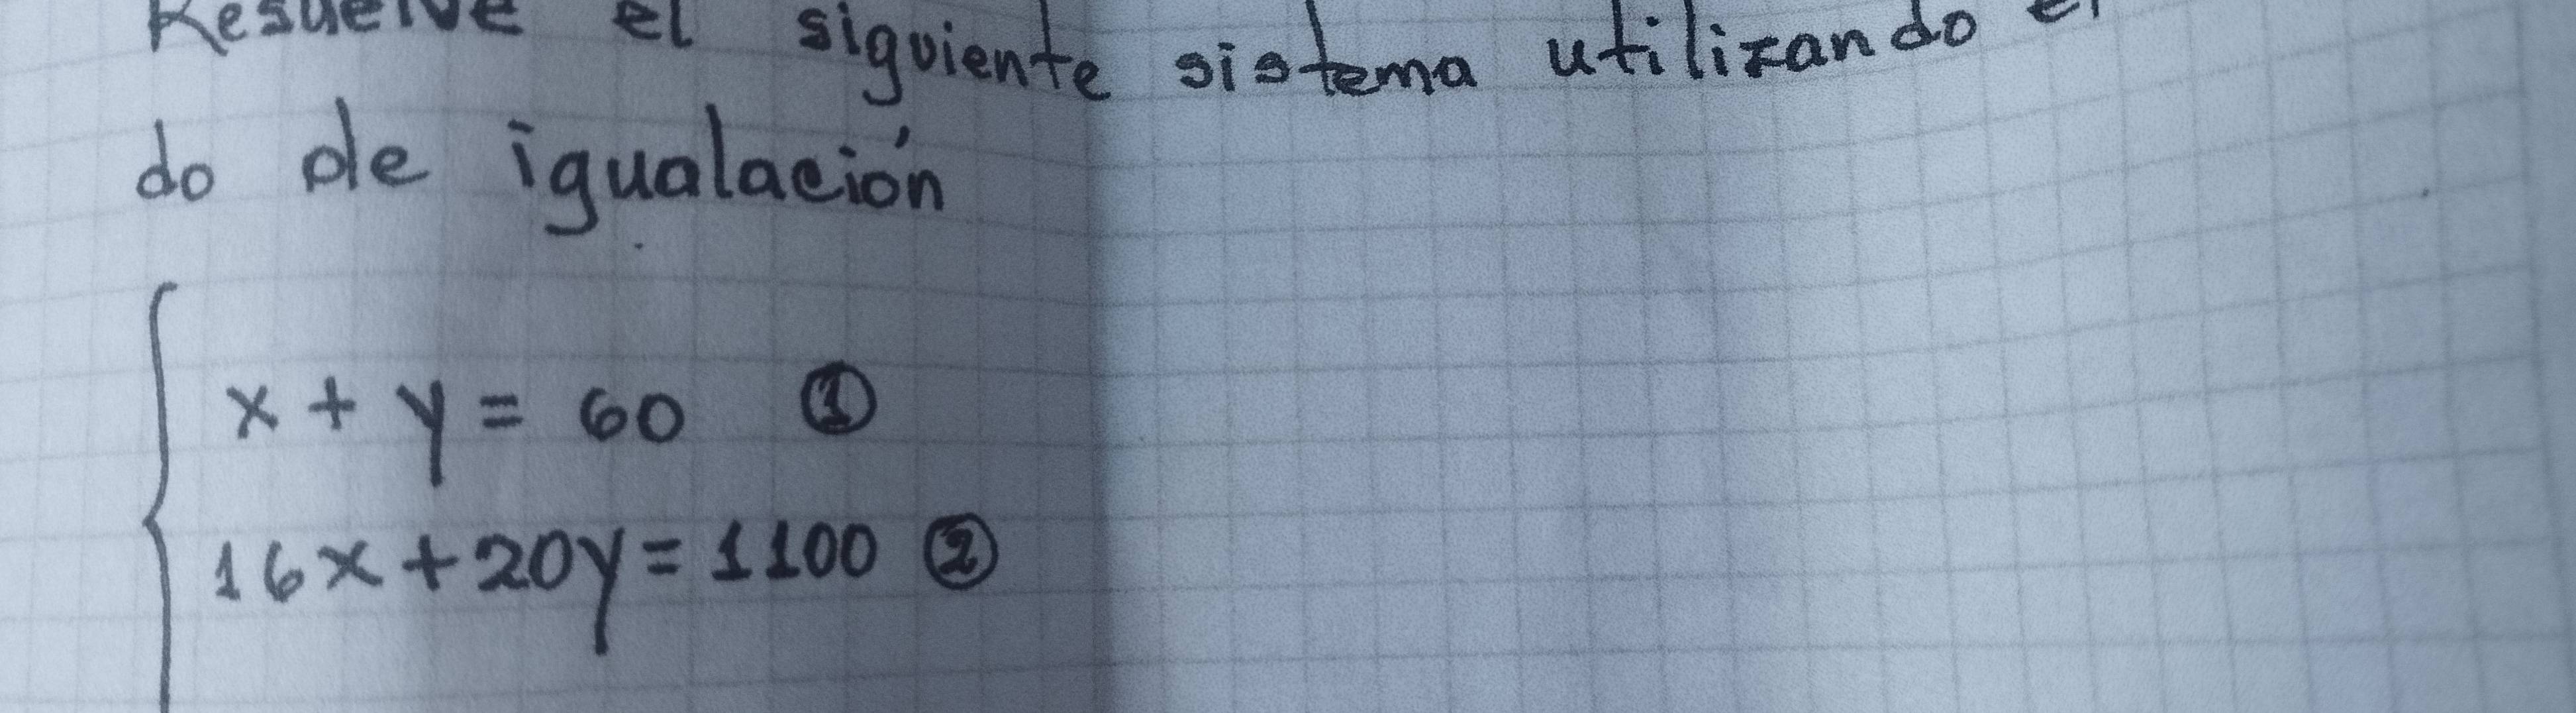 Resuelve el siguiente sistema utilizando el
do de igualación
x + y = 60 ①
16x + 20y = 1100 ②